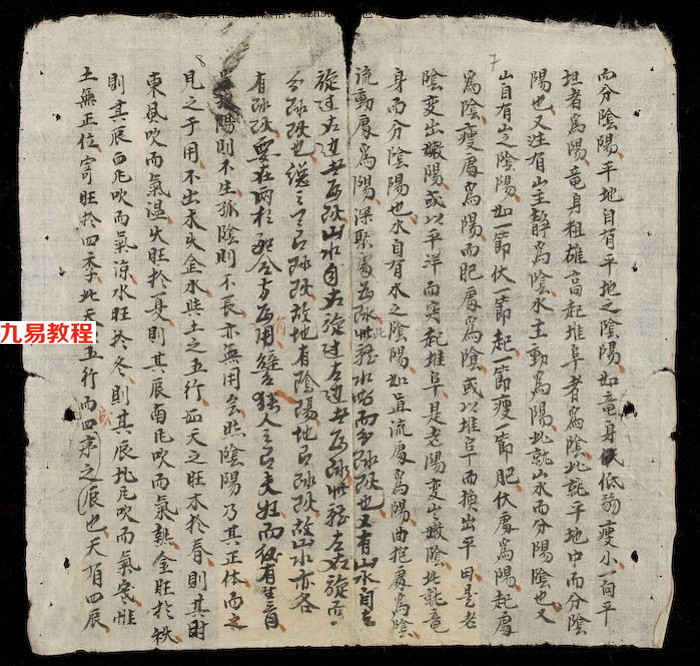 而分陰陽平地自有平地之陰陽如竜身低弱瘦小一向平
坦者為陽竜身粗雄高起堆阜者為陰此就平地中而分陰
陽也又注有山主靜為陰水主動為陽此就山水而分陽陰也又
山自有山之陰陽如一節伏一節起一節瘦一節肥伏處為陽起處
為陰瘦處為陽而肥處為陰或以堆阜而換出平田是老
陰变出嫩陽或以平洋而突起堆阜是老陽变出嫩陰此就竜
身而分陰陽也水自有水之陰陽如直流處為陽曲抱處為陰
流動處為陽深聚處為陰此水而分也又有山水自
旋过右边山水自右旋过左边左右旋
也總之有陰陽地山水亦各
有要在兩相配合方為用人之有夫妇而後有生育
陽則不生孤陰則不長亦無用会照陰陽乃其正体而之
見之于用不出木火金水與土之五行如天之旺木於春則其時
東風吹而氣温火旺於夏則其辰南風吹而氣熱金旺於秋
則其辰西風吹而氣凉水旺於冬則其辰北風吹而氣寒惟
土無正位寄旺於四季此天之五行而四季之派也天有四辰
九易教程